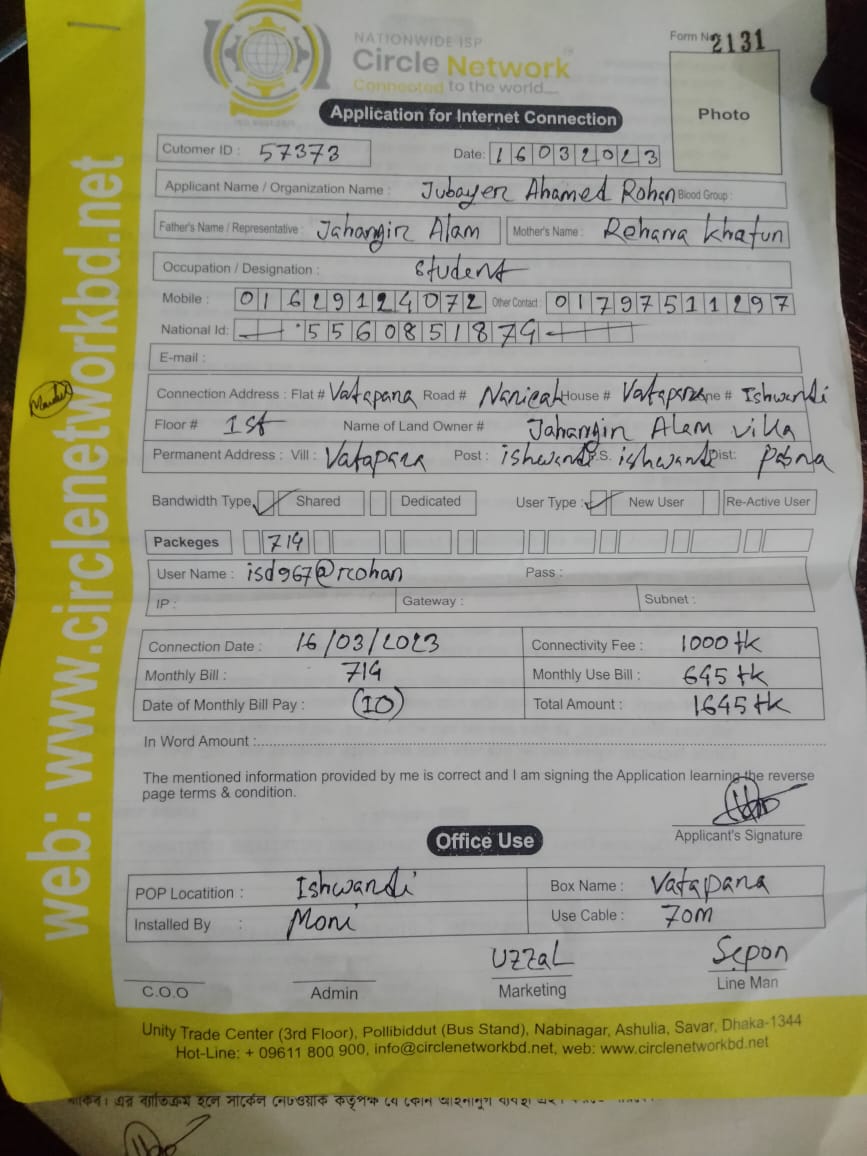 NATIONWIDE ISP
Circle Network
Connected to the world....
Form No 2131
Photo
Application for Internet Connection
Cutomer ID : 57373 Date: 16032023
Applicant Name / Organization Name : Jubayer Ahamed Rohan Blood Group :
Father's Name / Representative : Jahangir Alam Mother's Name : Rehana Khatun
Occupation / Designation : Student
Mobile : 01629124072 Other Contact : 01797511297
National Id: 5560851879
E-mail :
Connection Address : Flat # Vatapara Road # House # Vatapara ne # Ishwardi
Floor # 1st Name of Land Owner # Jahangir Alam villa
Permanent Address : Vill : Vatapara Post : ishwardi P.S. ishwardi Dist: Pabna
Bandwidth Type ✓ Shared Dedicated User Type : ✓ New User Re-Active User
Packeges 714
User Name : isd967@rohan Pass :
IP : Gateway : Subnet :
Connection Date : 16/03/2023 Connectivity Fee : 1000 tk
Monthly Bill : 714 Monthly Use Bill : 645 tk
Date of Monthly Bill Pay : (10) Total Amount : 1645 tk
In Word Amount :
The mentioned information provided by me is correct and I am signing the Application learning the reverse
page terms & condition.
Applicant's Signature
Office Use
POP Locatition : Ishwardi Box Name : Vatapara
Installed By : Moni Use Cable : 70m
UZZaL Sepon
C.O.O Admin Marketing Line Man
Unity Trade Center (3rd Floor), Pollibiddut (Bus Stand), Nabinagar, Ashulia, Savar, Dhaka-1344
Hot-Line: + 09611 800 900, info@circlenetworkbd.net, web: www.circlenetworkbd.net
web: www.circlenetworkbd.net
এর ব্যতিক্রম হলে সার্কেল নেটওয়ার্ক কর্তৃপক্ষ যে কোন আইনানুগ ব্যবস্থা